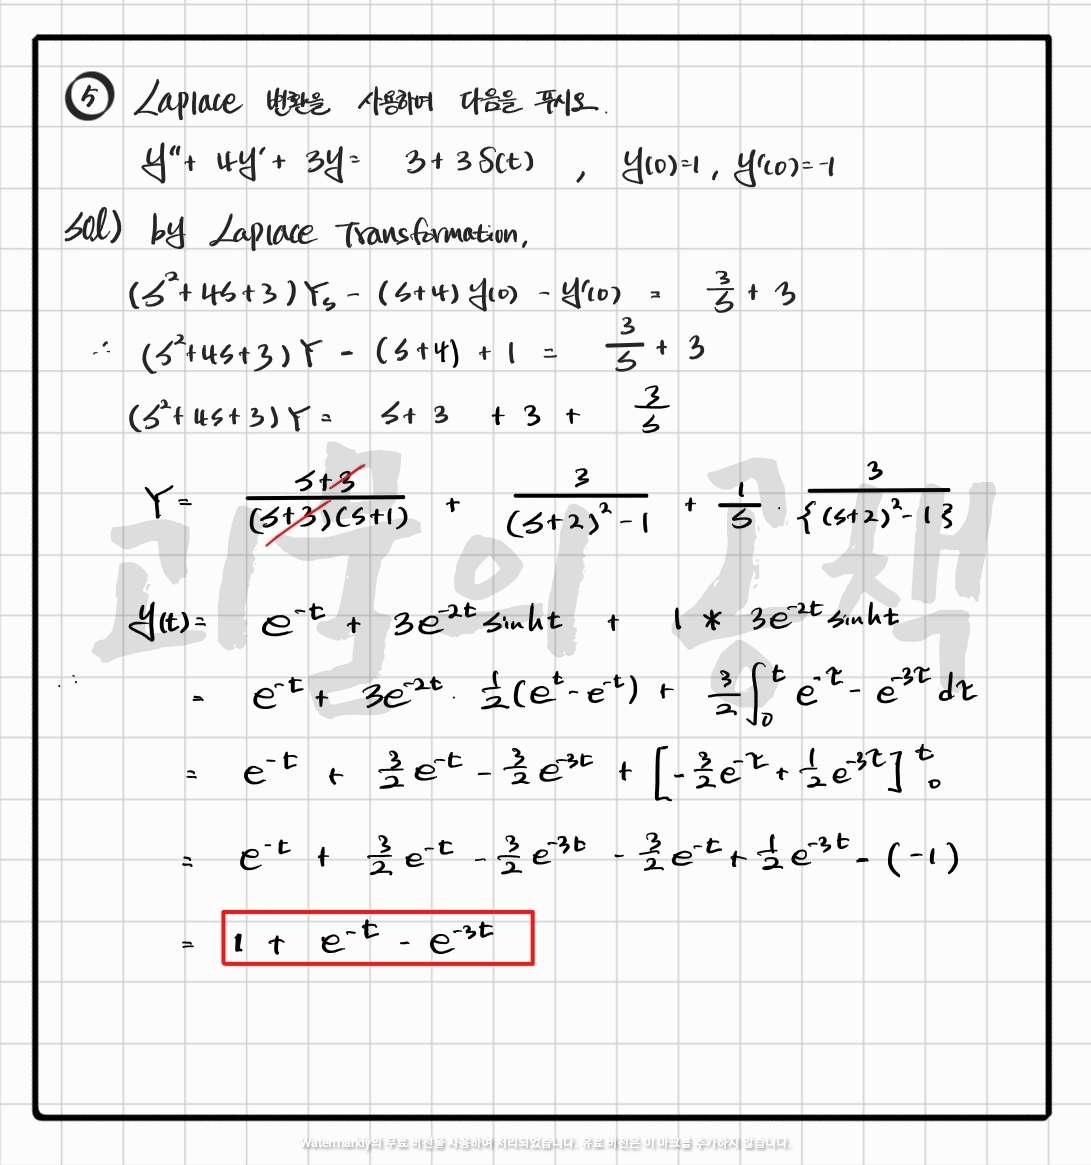 ⑤ Laplace 변환을 사용하여 다음을 푸시오.
y'' + 4y' + 3y = 3 + 3δ(t) , y(0)=1, y'(0)=-1
sol) by Laplace Transformation,
(s²+4s+3)Ys - (s+4)y(0) - y'(0) = 3/s + 3
∴ (s²+4s+3)Y - (s+4) + 1 = 3/s + 3
(s²+4s+3)Y = s+3 + 3 + 3/s
Y = (s+3)/((s+3)(s+1)) + 3/((s+2)²-1) + 1/s · 3/{(s+2)²-1}
y(t) = e^-t + 3e^-2t sinht + 1 * 3e^-2t sinht
∴ = e^-t + 3e^-2t · 1/2(e^t - e^-t) + 3/2 ∫₀^t e^-τ - e^-3τ dτ
= e^-t + 3/2 e^-t - 3/2 e^-3t + [-3/2 e^-τ + 1/2 e^-3τ]₀^t
= e^-t + 3/2 e^-t - 3/2 e^-3t - 3/2 e^-t + 1/2 e^-3t - (-1)
= 1 + e^-t - e^-3t
괴물의 공책
Watermarkly의 무료 버전을 사용하여 처리되었습니다. 유료 버전은 이 마크를 추가하지 않습니다.